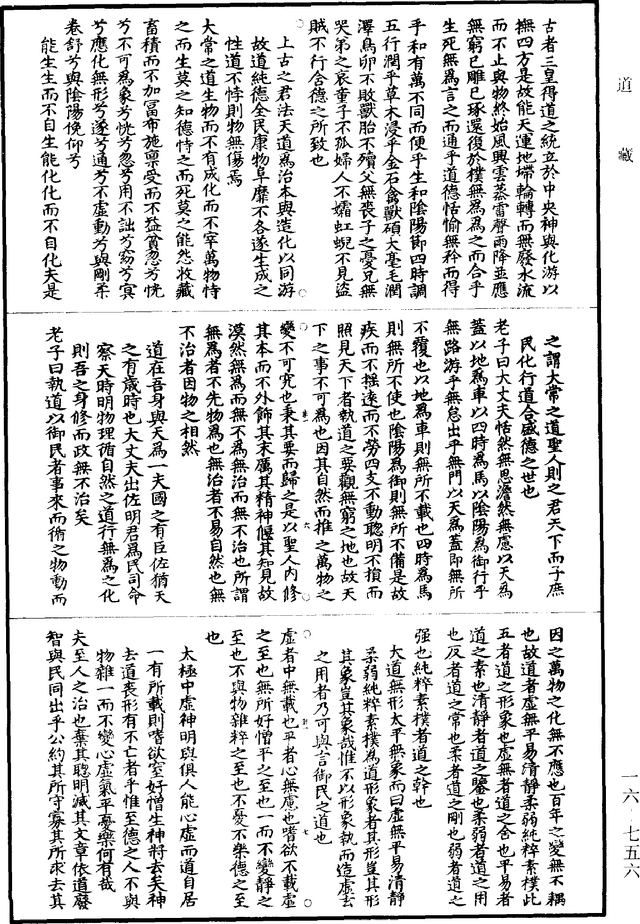 古者三皇得道之統立於中央神與化游以
撫四方是故能天運地墆輪轉而無廢水流
而不止與物終始風興雲蒸雷聲雨降並應
無窮已雕已琢還復於樸無為為之而合乎
生死無為言之而通乎道德恬愉無矜而得
乎和有萬不同而便乎生和陰陽節四時調
五行潤乎草木浸乎金石禽獸碩大毫毛潤
澤鳥卵不敗獸胎不殰父無喪子之憂兄無
哭弟之哀童子不孤婦人不孀虹蜺不見盜
賊不行含德之所致也
上古之君法天道為治本與造化以同游
故道純德全民康物阜靡不各遂生成之
性道不悖則物無傷焉
大常之道生物而不有成化而不宰萬物恃
之而生莫之知德恃之而死莫之能怨收藏
畜積而不加富布施禀受而不益貧忽兮怳
兮不可為象兮怳兮忽兮用不詘兮窈兮冥
兮應化無形兮遂兮通兮不虛動兮與剛柔
卷舒兮與陰陽俛仰兮
能生生而不自生能化化而不自化夫是
之謂大常之道聖人則之君天下而子庶
民化行道合盛德之世也
老子曰大丈夫恬然無思澹然無慮以天為
蓋以地為車以四時為馬以陰陽為御行乎
無路游乎無怠出乎無門以天為蓋即無所
不覆也以地為車則無所不載也四時為馬
則無所不使也陰陽為御則無所不備是故
疾而不搖遠而不勞四支不動聰明不損而
照見天下者執道之要觀無窮之地也故天
下之事不可為也因其自然而推之萬物之
變不可究也秉其要而歸之是以聖人內修
其本而不外飾其末厲其精神偃其知見故
漠然無為而無不為無治而無不治也所謂
無為者不先物為也無治者不易自然也無
不治者因物之相然
道在吾身與天為一夫國之有臣佐猶天
之有歲時也大丈夫出佐明君為民司命
察天時明物理循自然之道行無為之化
則吾之身修而政無不治矣
老子曰執道以御民者事來而循之物動而
因之萬物之化無不應也百年之變無不耦
也故道者虛無平易清靜柔弱純粹素樸此
五者道之形象也虛無者道之舍也平易者
道之素也清靜者道之鑒也柔弱者道之用
也反者道之常也柔者道之剛也弱者道之
强也純粹素樸者道之幹也
大道無形太平無象而曰虛無平易清靜
柔弱純粹素樸為道形象者其形豈其形
其象豈其象哉惟不以形象執而造虛去
之用者乃可與言御民之道也
虛者中無載也平者心無慮也嗜欲不載虛
之至也無所好憎平之至也一而不變靜之
至也不與物雜粹之至也不憂不樂德之至
也
太極中虛神明與俱人能心虛而道自居
一有所載則嗜欲室好憎生神將去矣神
去道喪形有不亡者乎惟至德之人不與
物雜一而不變心虛氣平憂樂何有哉
夫至人之治也棄其聰明滅其文章依道廢
智與民同出乎公約其所守寡其所求去其
道藏
一六·七五六